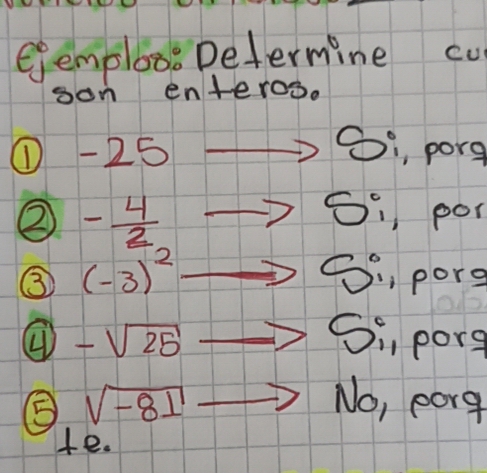 Ejemplos: Determine cu
son enteros.
① -25 → Si, porq
② -4/2 → Si, por
③ (-3)² → Si, porq
④ -√25 → Si, porq
⑤ √-81 → No, porq
te.